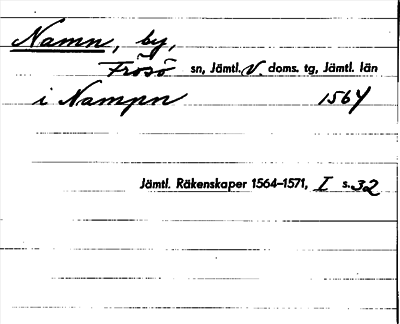 Namn, by,
Frösö sn, Jämtl. V. doms. tg, Jämtl. län
i Nampn 1564
Jämtl. Räkenskaper 1564–1571, I s. 32